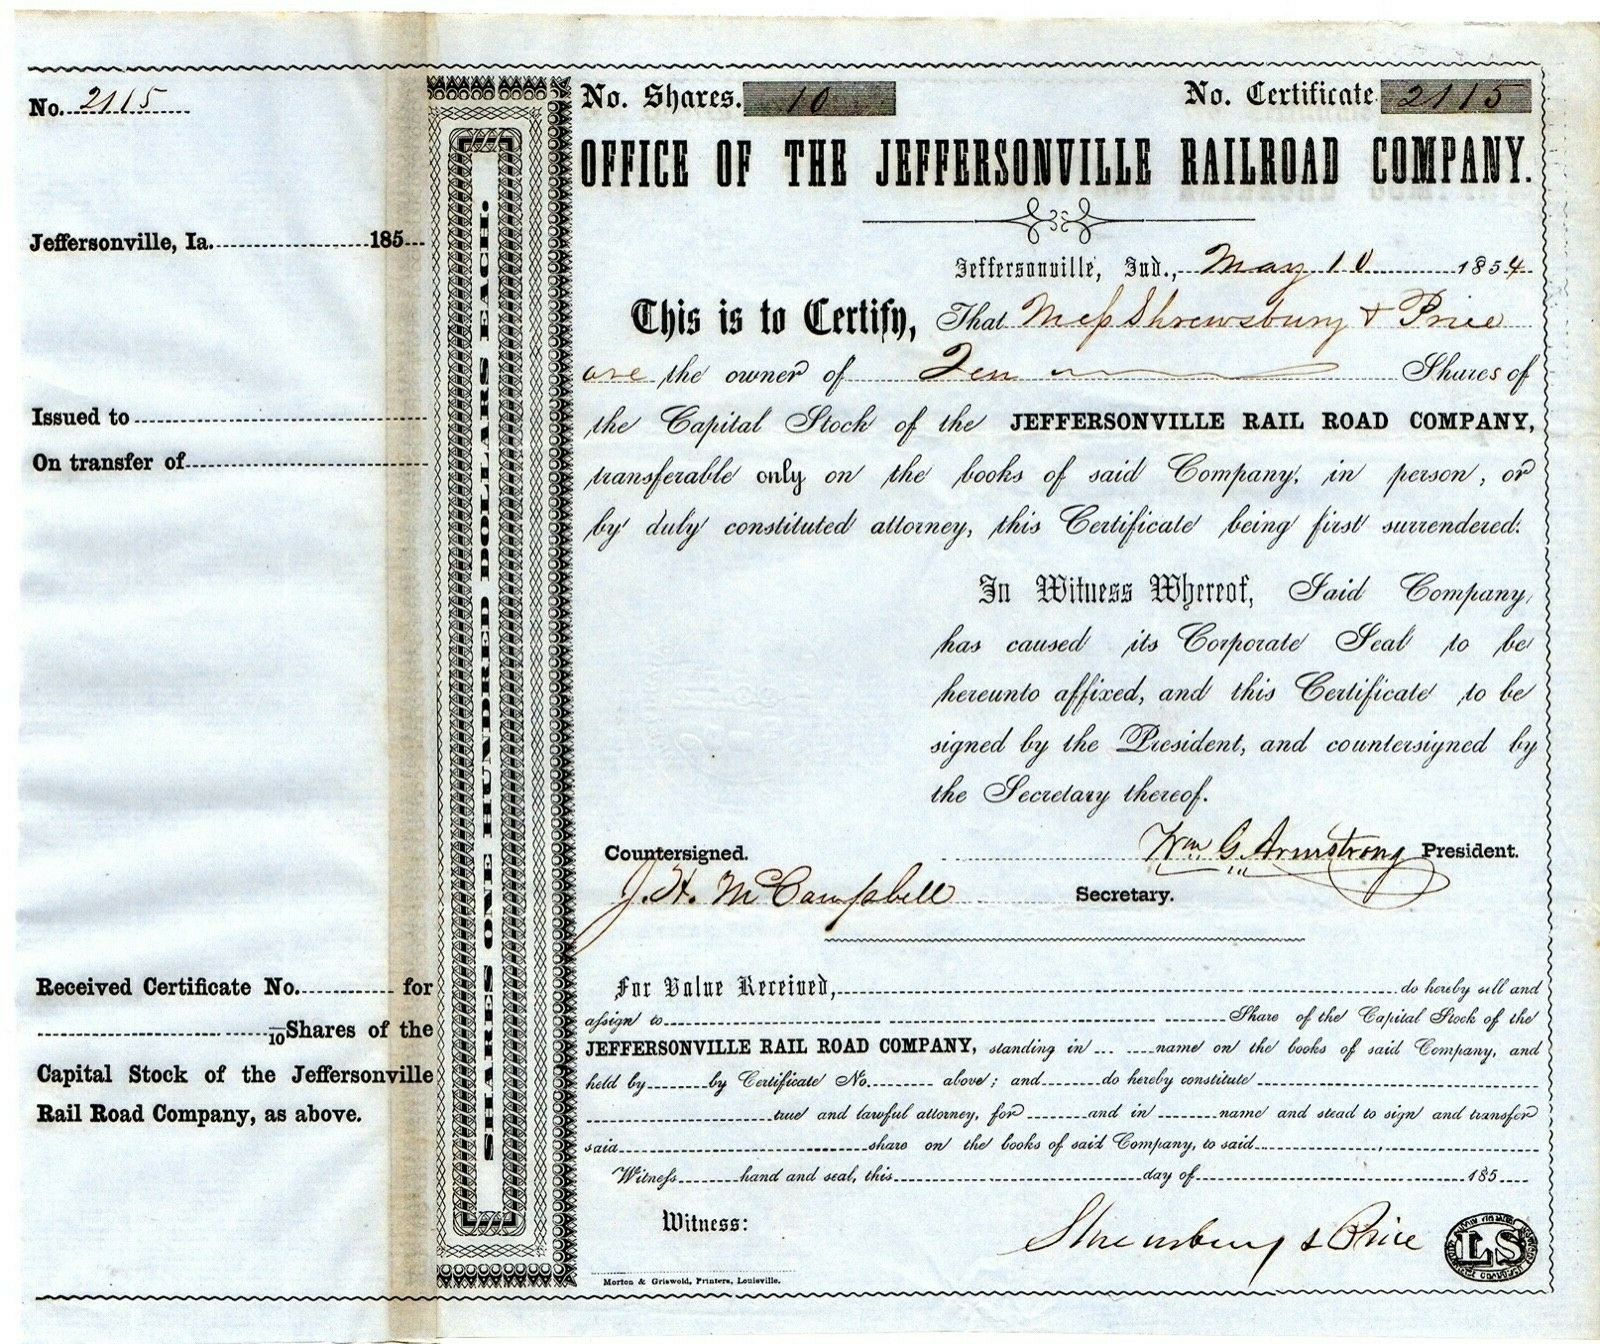 No. 2115
Jeffersonville, Ia. 185
Issued to
On transfer of
Received Certificate No. for
/10 Shares of the
Capital Stock of the Jeffersonville
Rail Road Company, as above.
SHARES ONE HUNDRED DOLLARS EACH.
No. Shares. 10 No. Certificate 2115
OFFICE OF THE JEFFERSONVILLE RAILROAD COMPANY.
Jeffersonville, Ind., May 10 1854
This is to Certify, That Mess Shrewsbury & Price
are the owner of Ten Shares of
the Capital Stock of the JEFFERSONVILLE RAIL ROAD COMPANY,
transferable only on the books of said Company, in person, or
by duly constituted attorney, this Certificate being first surrendered.
In Witness Whereof, Said Company
has caused its Corporate Seal to be
hereunto affixed, and this Certificate to be
signed by the President, and countersigned by
the Secretary thereof.
Wm. G. Armstrong President.
Countersigned.
J. H. McCampbell Secretary.
For Value Received, do hereby sell and
assign to Share of the Capital Stock of the
JEFFERSONVILLE RAIL ROAD COMPANY, standing in name on the books of said Company, and
held by by Certificate No. above; and do hereby constitute
true and lawful attorney, for and in name and stead to sign and transfer
said share on the books of said Company, to said
Witness hand and seal, this day of 185
Witness: Shrewsbury & Price LS
Morton & Griswold, Printers, Louisville.